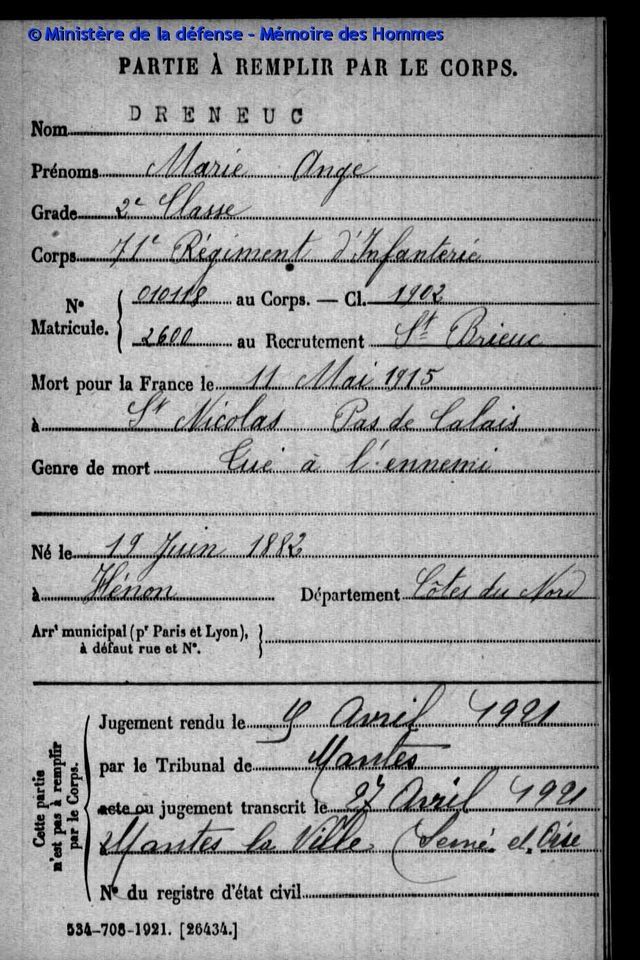 © Ministère de la défense - Mémoire des Hommes
PARTIE À REMPLIR PAR LE CORPS.
Nom DRENEUC
Prénoms Marie Ange
Grade 2e Classe
Corps 71e Régiment d'Infanterie
N° Matricule. 010118 au Corps. — Cl. 1902
2600 au Recrutement St Brieuc
Mort pour la France le 11 Mai 1915
à St Nicolas Pas de Calais
Genre de mort Tué à l'ennemi
Né le 19 Juin 1882
à Hénon Département Côtes du Nord
Arrt municipal (pr Paris et Lyon),
à défaut rue et N°.
Cette partie n'est pas à remplir par le Corps.
Jugement rendu le 5 Avril 1921
par le Tribunal de Mantes
acte ou jugement transcrit le 27 Avril 1921
Mantes la Ville Seine et Oise
N° du registre d'état civil
534-708-1921. [26434.]